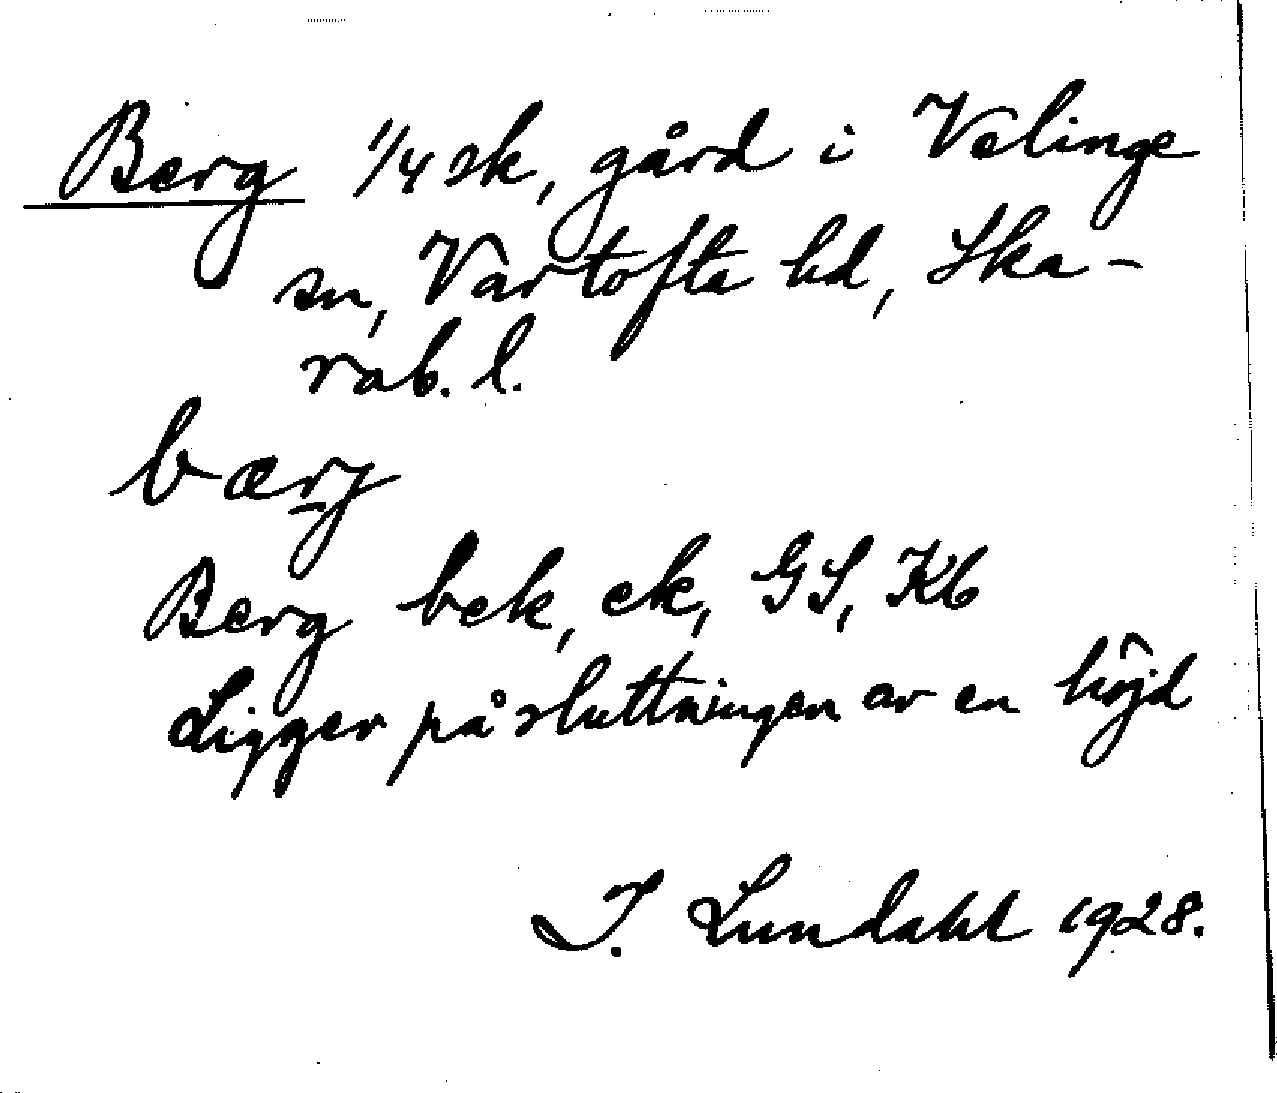 Berg 1/4 sk, gård i Velinge
sn, Vartofta hd, Ska-
rab. l.
bærj
Berg bek, ek, GS, Kb
Ligger på sluttningen av en höjd
I. Lundahl 1928.